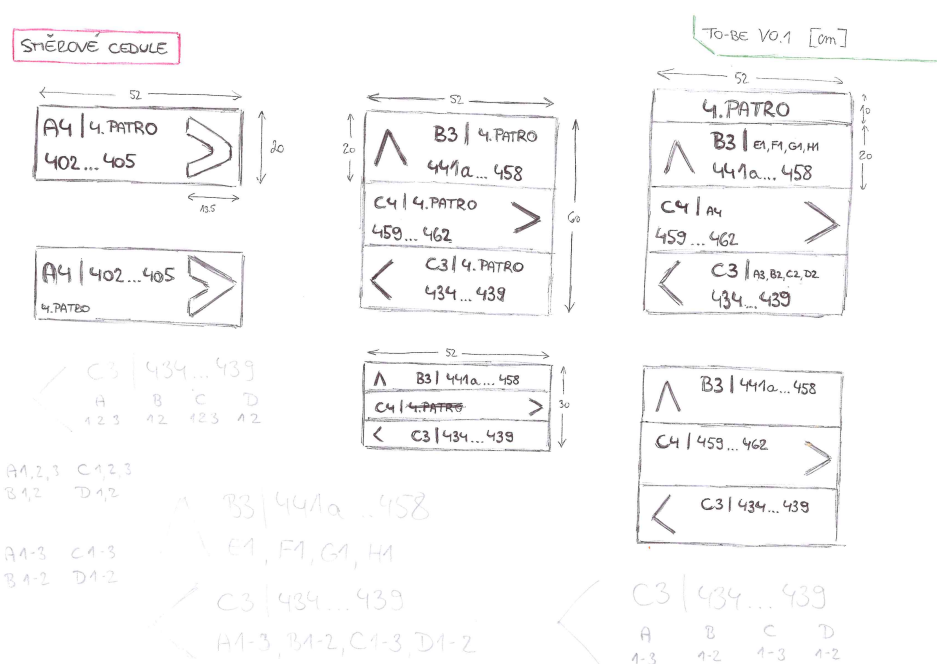 SMĚROVÉ CEDULE
TO-BE V0.1 [cm]
52
A4 | 4. PATRO
402... 405
20
13.5
A4 | 402...405
4. PATRO
52
20
B3 | 4. PATRO
441a... 458
C4 | 4. PATRO
459... 462
C3 | 4. PATRO
434... 439
60
52
4. PATRO
10
B3 | E1, F1, G1, H1
441a... 458
20
C4 | A4
459... 462
C3 | A3, B2, C2, D2
434... 439
52
B3 | 441a... 458
C4 | 4. PATRO
C3 | 434... 439
30
B3 | 441a... 458
C4 | 459... 462
C3 | 434... 439
C3 | 434... 439
A B C D
123 12 123 12
A1,2,3 C1,2,3
B1,2 D1,2
A1-3 C1-3
B1-2 D1-2
B3 | 441a ...458
E1, F1, G1, H1
C3 | 434... 439
A1-3, B1-2, C1-3, D1-2
C3 | 434... 439
A B C D
1-3 1-2 1-3 1-2